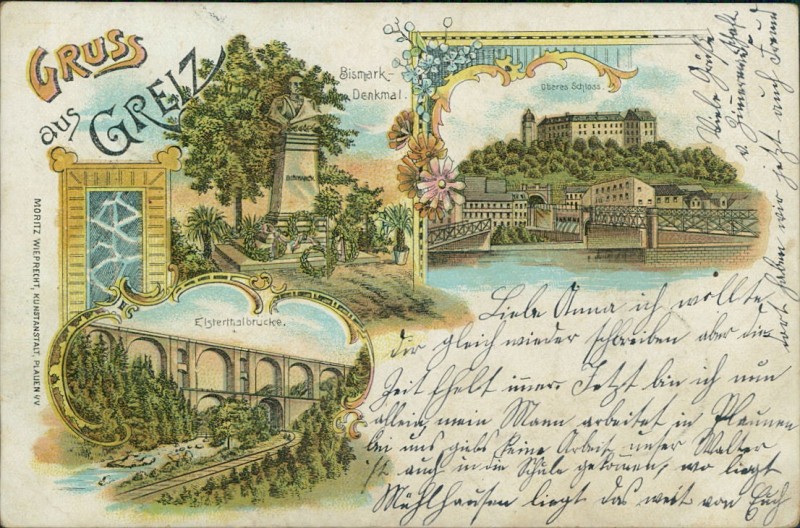 GRUSS
aus GREIZ
Bismark-
Denkmal.
Oberes Schloss.
BISMARCK
Elsterthalbrücke.
MORITZ WIEPRECHT, KUNSTANSTALT, PLAUEN i/V.
Liebe Anna ich wollte
dir gleich wieder schreiben aber die
Zeit fehlt immer Jetzt bin ich nun
allein, mein Mann arbeitet in Plaunen
bei uns giebs keine Arbeit, unser Walter
ist auch in die Schule gekomen, wo liegt
Mühlhausen liegt das weit von Euch
dort haben wir jetzt auch Freund
Viele Grüße
v.